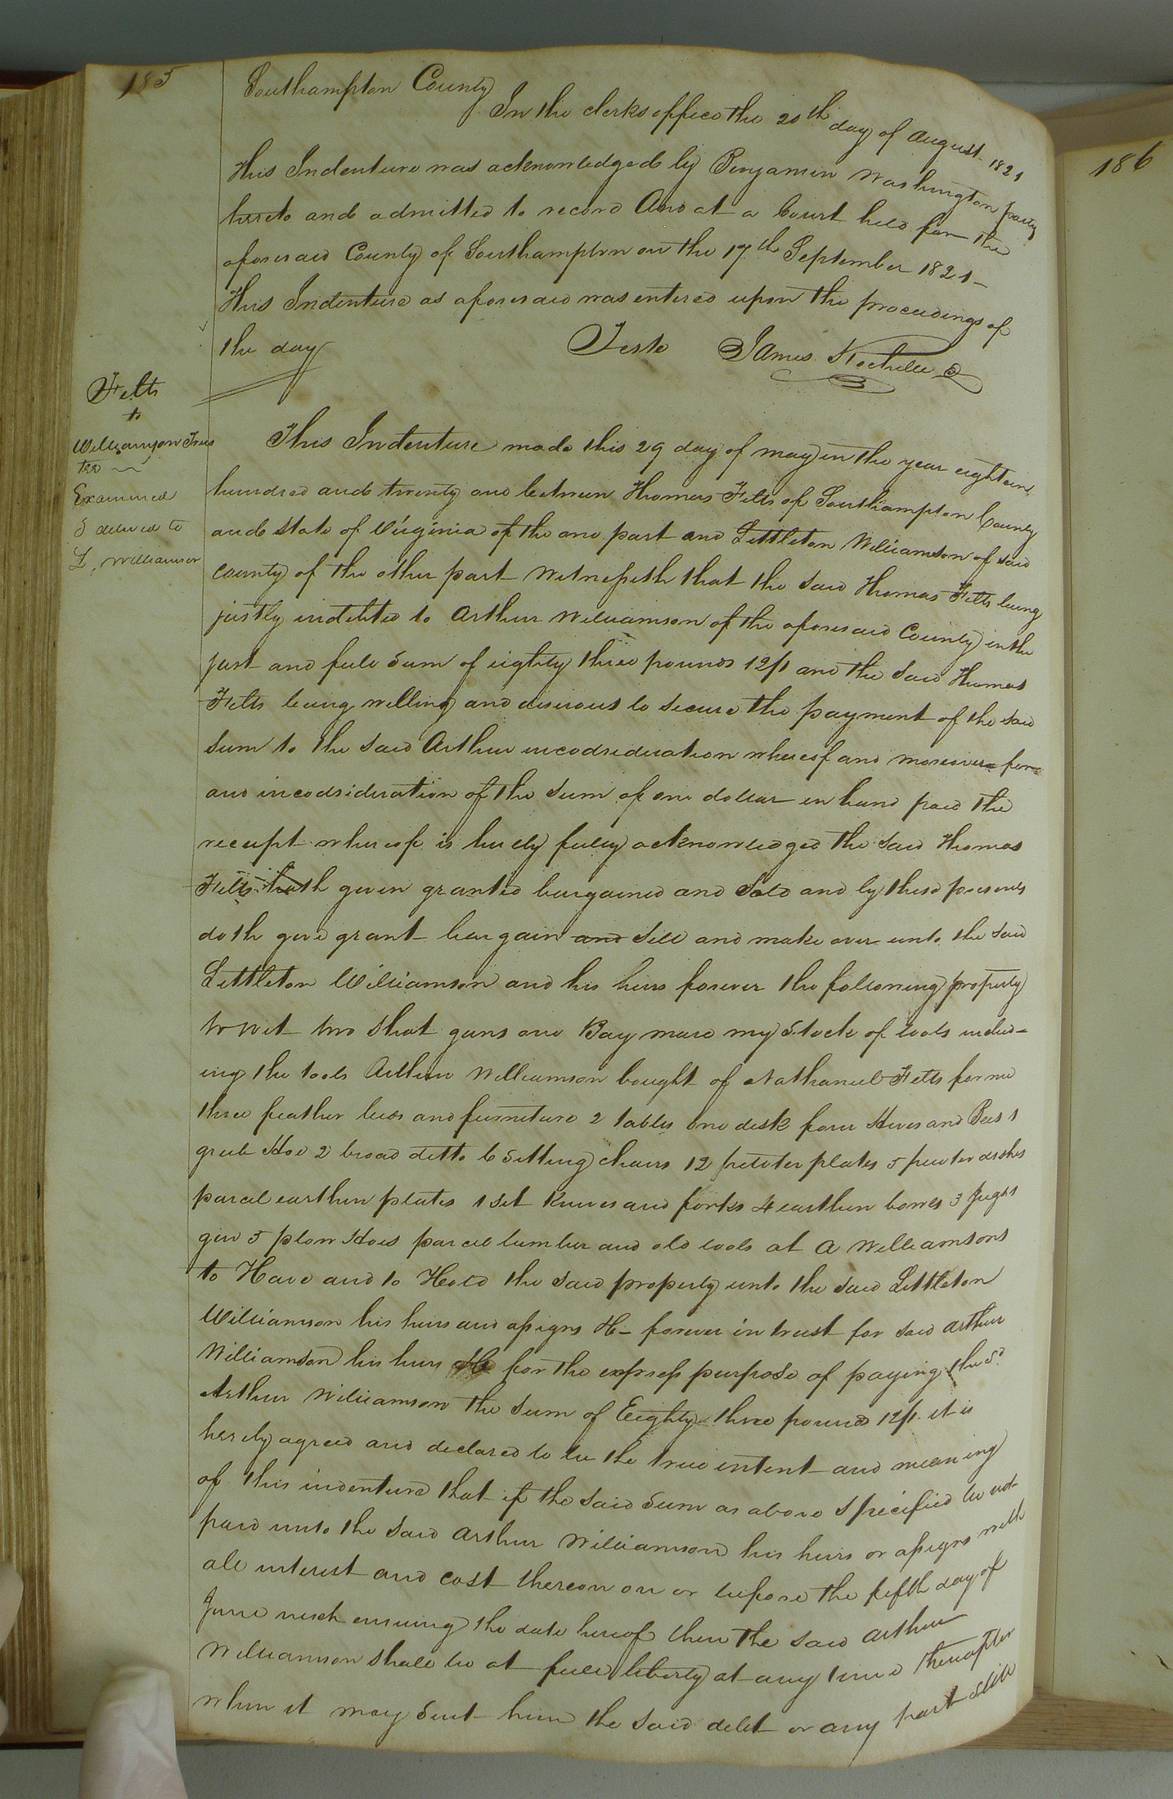 185
186
Southampton County
In the clerks office the 20th day of August 1821
This Indenture was acknowledged by Benjamin Washington party
hereto and admitted to record And at a Court held for the
aforesaid County of Southampton on the 17th September 1821-
This Indenture as aforesaid was entered upon the proceedings of
the day
Teste James Rochelle
Felts
to
Williamson Trus
tee
Examined
& delived to
L. Williamson
This Indenture made this 29 day of may in the year eighteen
hundred and twenty one between Thomas Felts of Southampton County
and State of Virginia of the one part and Littleton Williamson of said
county of the other part Witnesseth that the said Thomas Felts being
justly indebted to Arthur Williamson of the aforesaid County in the
just and full Sum of eighty three pounds 12/1 and the said Thomas
Felts being willing and desirous to secure the payment of the said
sum to the said Arthur incodsideration whereof and moreover for
and incodsideration of the sum of one dollar in hand paid the
receipt whereof is hereby fully acknowledged the said Thomas
Felts hath given granted bargained and Sold and by these presents
doth give grant bargain and Sell and make over unto the said
Littleton Williamson and his heirs forever the following property
to wit two Shot guns one Bay mare my Stock of tools includ-
ing the tools Arthur Williamson bought of Nathaniel Felts for me
three feather beds and furniture 2 tables one desk four Hives and Bees 1
grub Hoe 2 broad ditto 6 Sitting chairs 12 pewter plates 5 pewter dishes
parcel earthen plates 1 set Knives and forks 4 earthen bowls 3 jugs 1
gin 5 plow Hoes parcel lumber and old tools at A Williamsons
to Have and to Hold the said property unto the said Littleton
Williamson his heirs and assigns forever in trust for said Arthur
Williamson his heirs for the express purpose of paying the Sd.
Arthur Williamson the Sum of Eighty three pounds 12/1. it is
hereby agreed and declared to be the true intent and meaning
of this indenture that if the said Sum as above Specified be not
paid unto the said Arthur Williamson his heirs or assigns with
all interest and cost thereon on or before the fifth day of
June ensuing the date hereof then the said Arthur
Williamson shall be at full liberty at any time thereafter
when it may Suit him the said debt or any part still